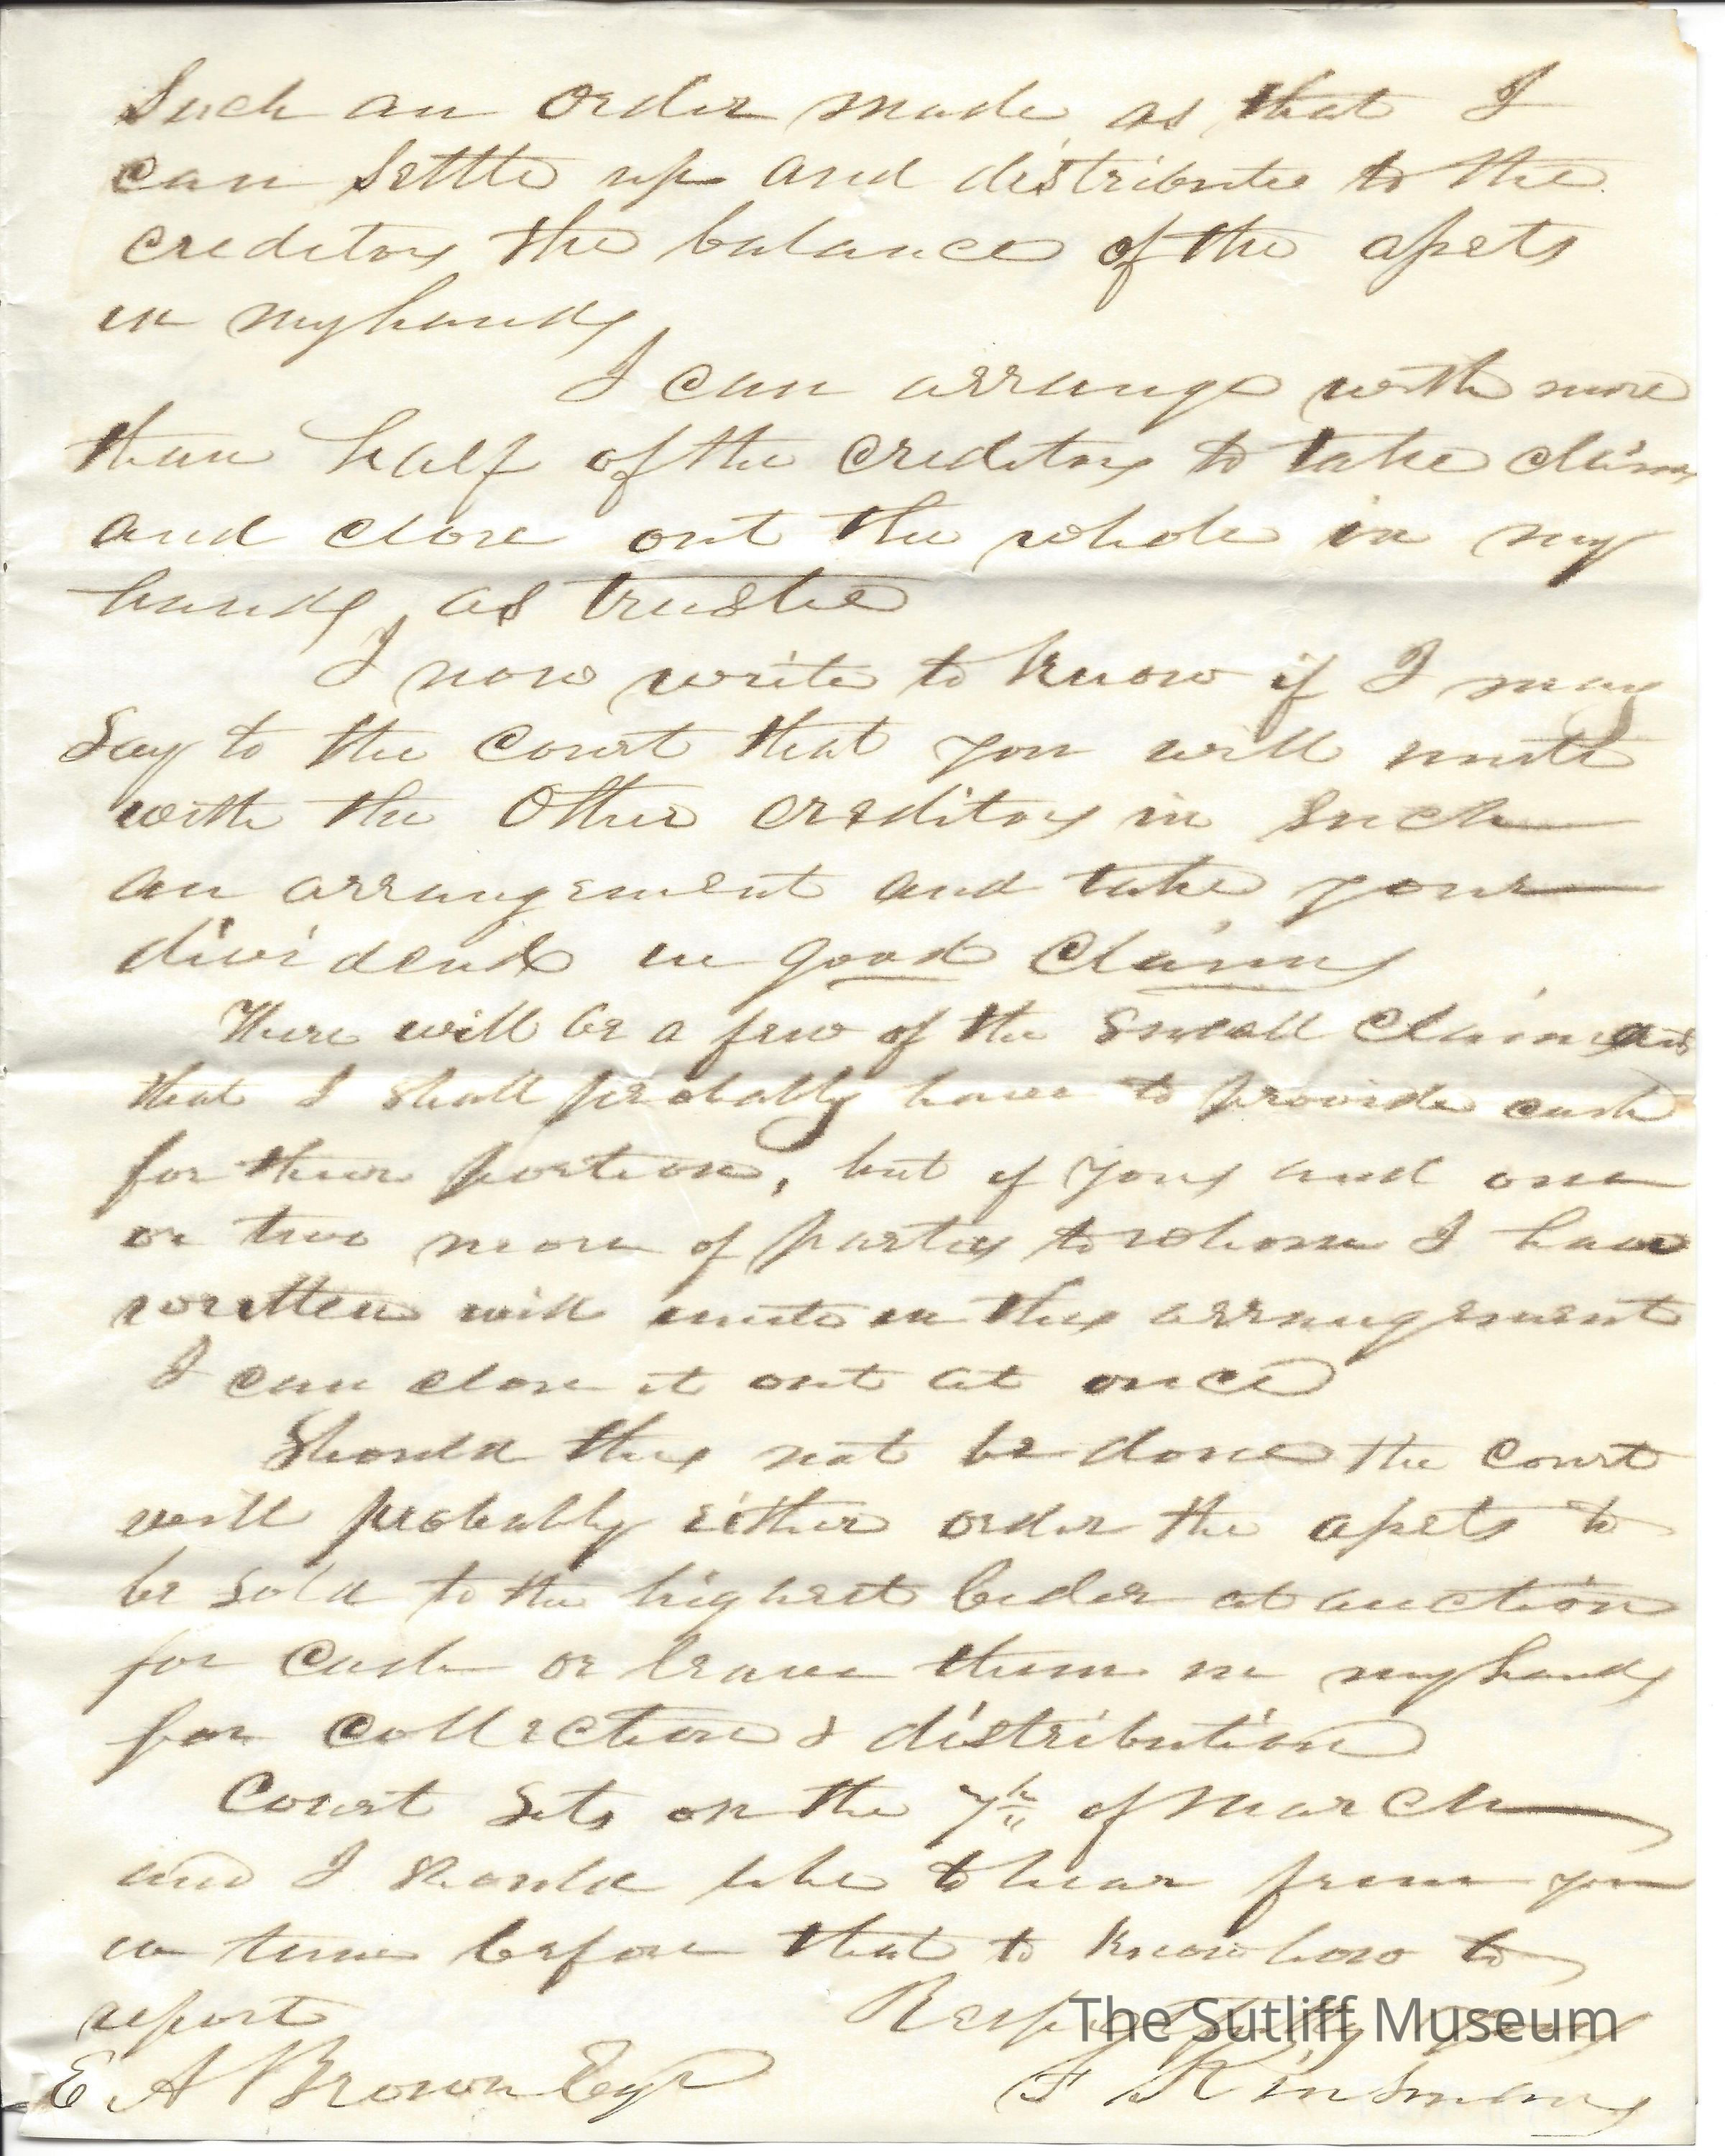 Such an order made as that I
can settle up and distribute to the
creditors the balance of the assets
in my hands
I can arrange with more
than half of the creditors to take claims
and close out the whole in my
hands, as trustee
I now write to know if I may
Say to the court that you will unite
with the other creditors in such
an arrangement and take your
dividend in good claims
There will be a few of the small claimants
that I shall probably have to provide cash
for their portion, but if you and one
or two more of parties to whom I have
written will unite in this arrangement
I can close it out at once
Should this not be done the court
will probably either order the assets to
be sold to the highest bider at auction
for cash or leave them in my hands
for collection & distribution
Court sets on the 7th of March
and I should like to hear from you
in time before that to know how to
report
Respectfully yours
E A Brown Esqr
F Kinsman
The Sutliff Museum